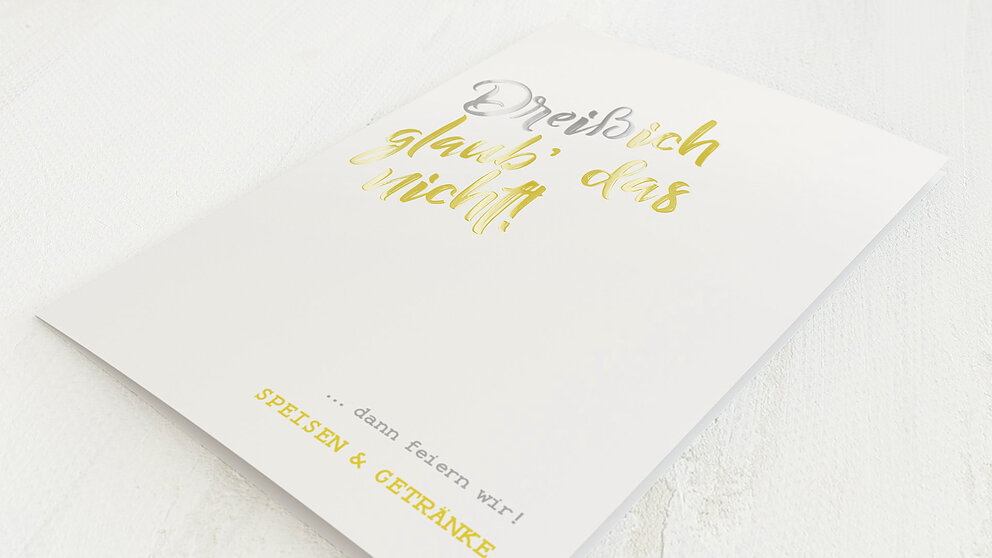 Dreißich
glaub' das
nicht!
... dann feiern wir!
SPEISEN & GETRÄNKE